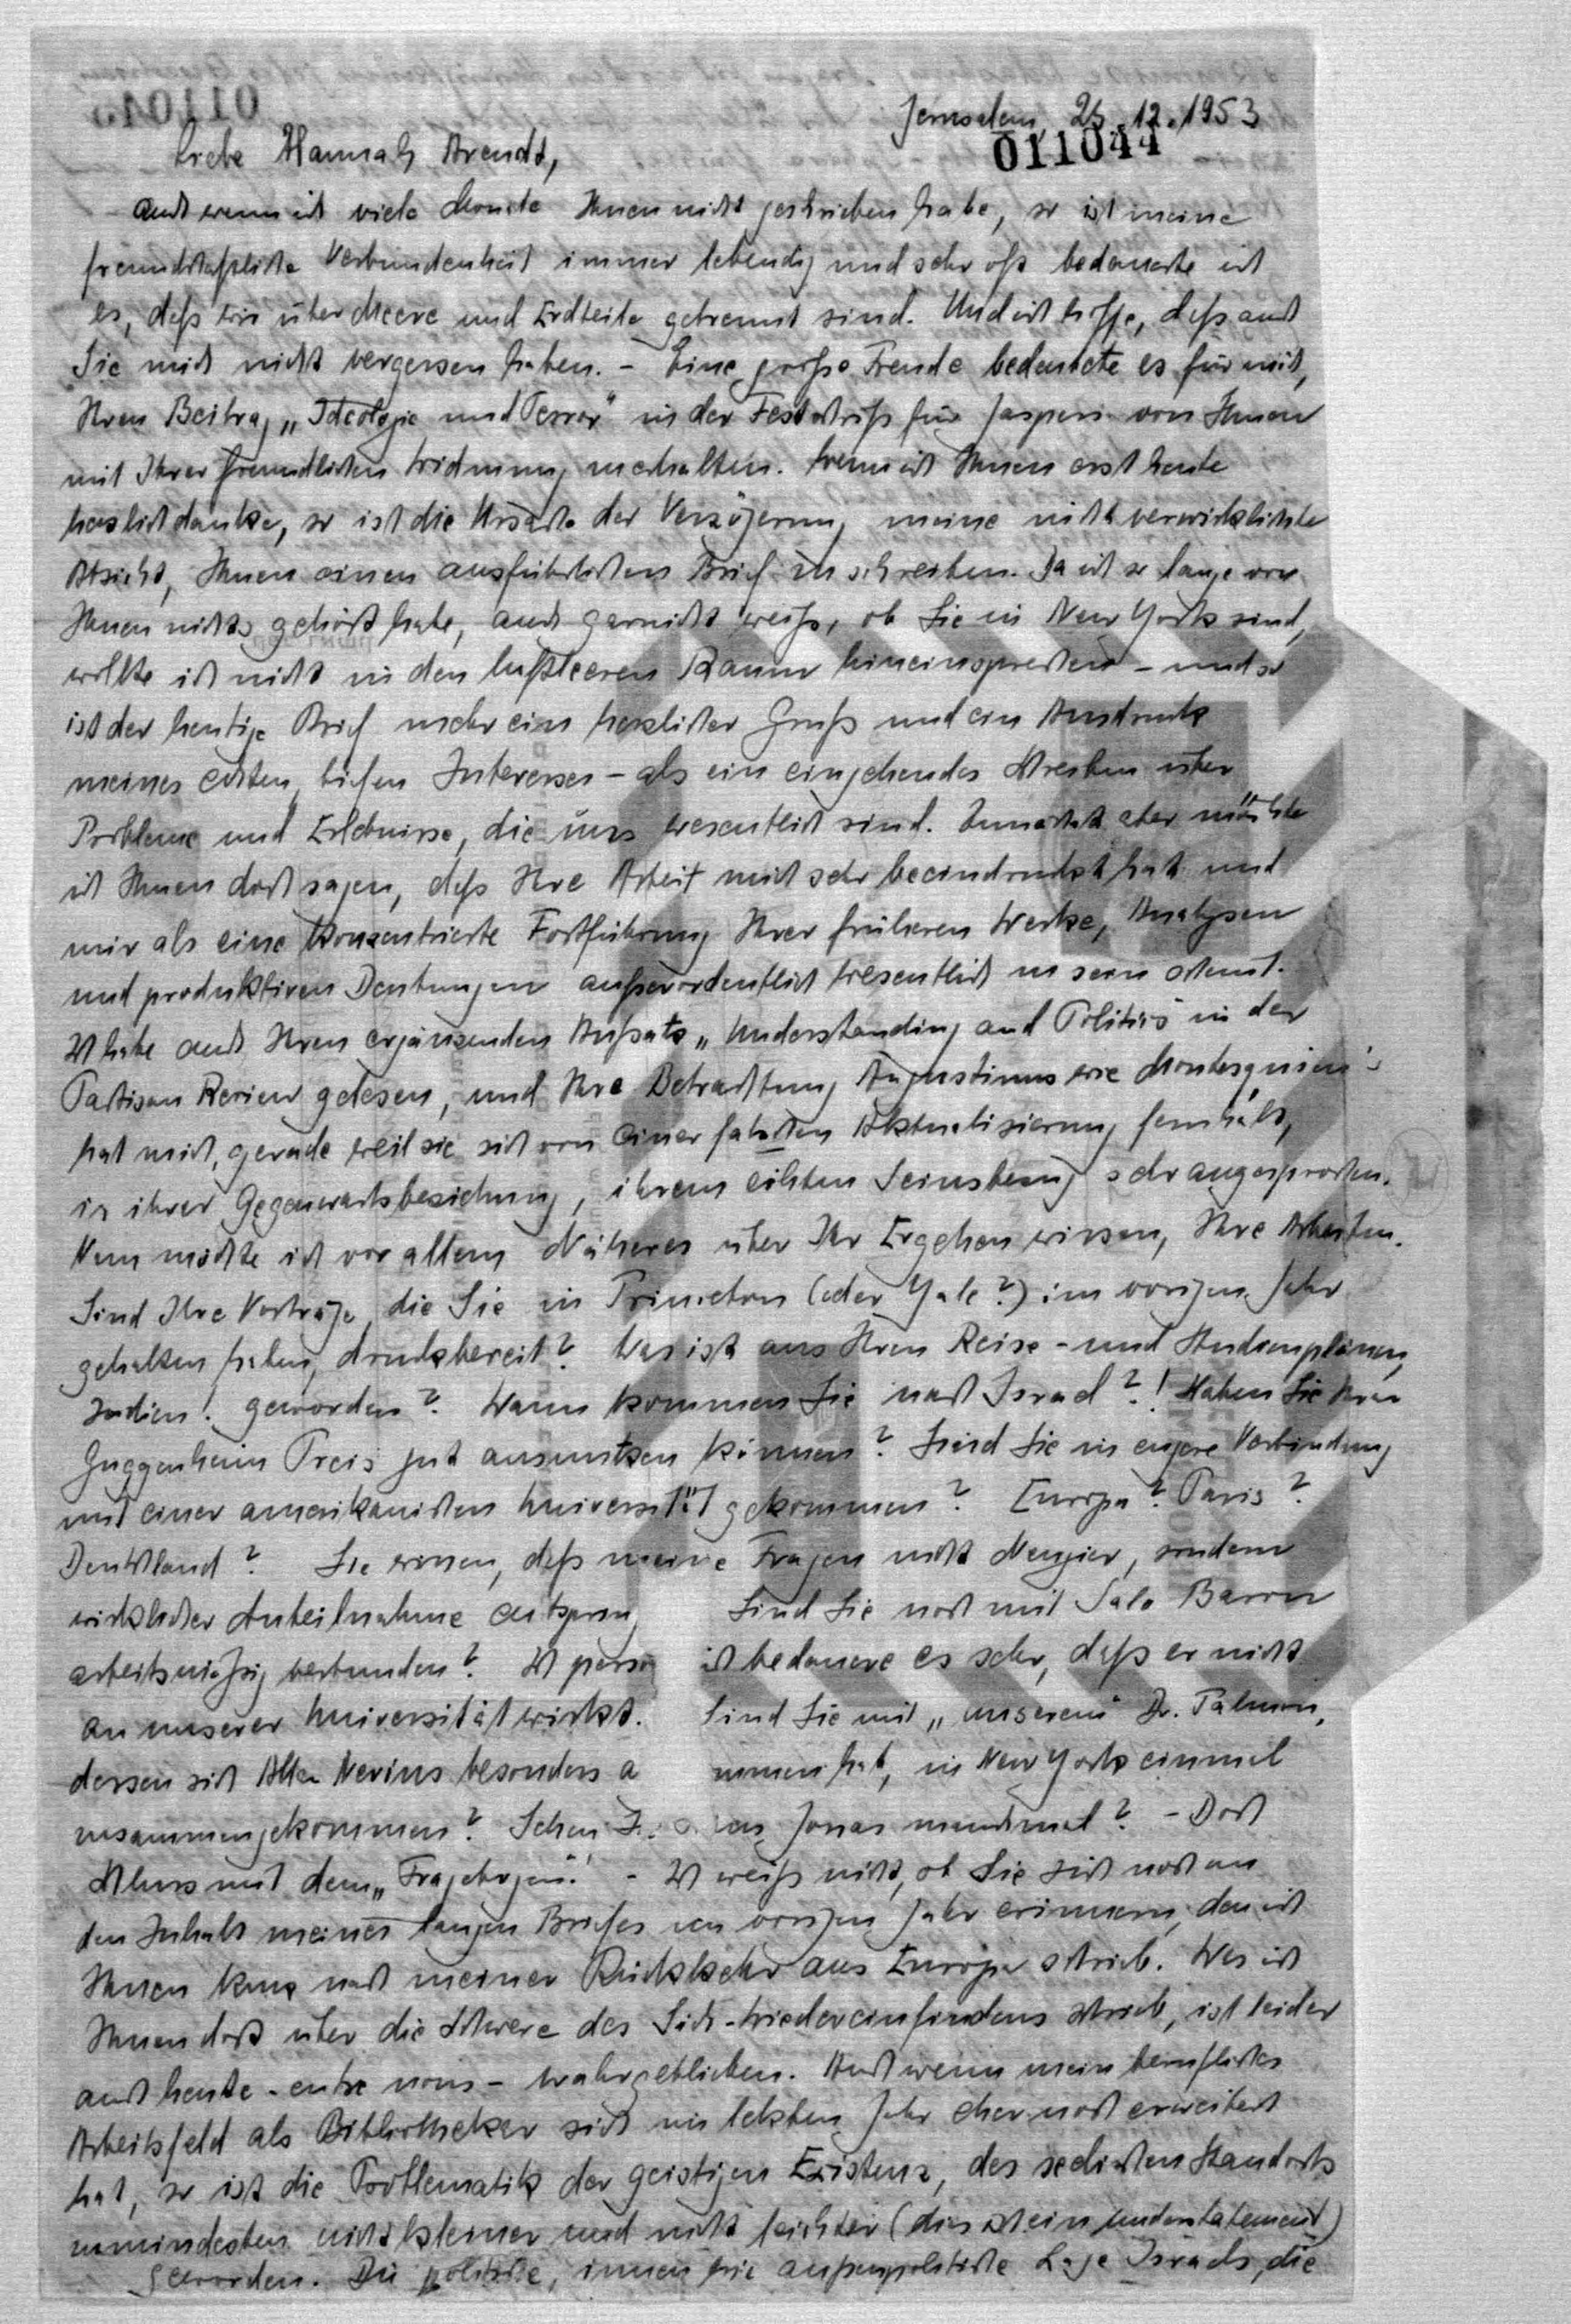 011044
Jerusalem, 25.12.1953
Liebe Hannah Arendt,
auch wenn ich viele Monate Ihnen nicht geschrieben habe, so ist meine
freundschaftliche Verbundenheit immer lebendig und sehr oft bedauerte ich
es, daß wir über Meere und Erdteile getrennt sind. Und ich hoffe, daß auch
Sie mich nicht vergessen haben. - Eine große Freude bedeutete es für mich,
Ihren Beitrag „Ideologie und Terror" in der Festschrift für Jaspers von Ihnen
mit Ihrer freundlichen Widmung zu erhalten. Wenn ich Ihnen erst heute
herzlich danke, so ist die Ursache der Verzögerung meine nicht verwirklichte
Absicht, Ihnen einen ausführlichen Brief zu schreiben. Da ich so lange von
Ihnen nichts gehört habe, auch garnicht weiß, ob Sie in New York sind,
wollte ich nicht in den luftleeren Raum hineinsprechen - und so
ist der heutige Brief mehr ein herzlicher Gruß und ein Ausdruck
meines echten, tiefen Interesses - als ein eingehendes Schreiben über
Probleme und Erlebnisse, die uns wesentlich sind. Zunächst aber möchte
ich Ihnen doch sagen, daß Ihre Arbeit mich sehr beeindruckt hat und
mir als eine konzentrierte Fortführung Ihrer früheren Werke, Analysen
und produktiven Deutungen außerordentlich wesentlich zu sein scheint.
Ich habe auch Ihren ergänzenden Aufsatz „Understanding and Politics" in der
Partisan Review gelesen, und Ihre Betrachtung Augustinus wie Montesquieu's
hat mich, gerade weil sie sich von einer falschen Aktualisierung fernhält,
in ihrer Gegenwartsbeziehung, ihrem echten Seinsbezug sehr angesprochen.
Nun möchte ich vor allem Näheres über Ihr Ergehen wissen, Ihre Arbeiten.
Sind Ihre Vorträge, die Sie in Princeton (oder Yale?) im vorigen Jahr
gehalten haben, druckbereit? Was ist aus Ihren Reise- und Studienplänen,
Indien! geworden? Wann kommen Sie nach Israel?! Haben Sie Ihren
Guggenheim Preis gut ausnutzen können? Sind Sie in engere Verbindung
mit einer amerikanischen Universität gekommen? Europa? Paris?
Deutschland? Sie wissen, daß meine Fragen nicht Neugier, sondern
wirklicher Anteilnahme entspring Sind Sie noch mit Salo Baron
arbeitsmäßig verbunden? Ich perso ich bedauere es sehr, daß er nicht
an unserer Universität wirkt. Sind Sie mit „unserem" Dr. Talmon,
dessen sich Allan Nevins besonders a mmen hat, in New York einmal
zusammengekommen? Sehen Jonas manchmal? - Doch
Schluss mit dem „Fragebogen"! - Ich weiß nicht, ob Sie sich noch an
den Inhalt meines langen Briefes vom vorigen Jahr erinnern, den ich
Ihnen kurz nach meiner Rückkehr aus Europa schrieb. Was ich
Ihnen dort über die Schwere des Sich-Wiedereinfindens schrieb, ist leider
auch heute - entre nous - wahrgeblieben. Auch wenn mein berufliches
Arbeitsfeld als Bibliothekar sich im letzten Jahr eher noch erweitert
hat, so ist die Problematik der geistigen Existenz, des seelischen Standorts
zumindesten nicht kleiner und nicht leichter (dies ist ein understatement)
geworden. Die politische, innen wie außenpolitische Lage Israels, die